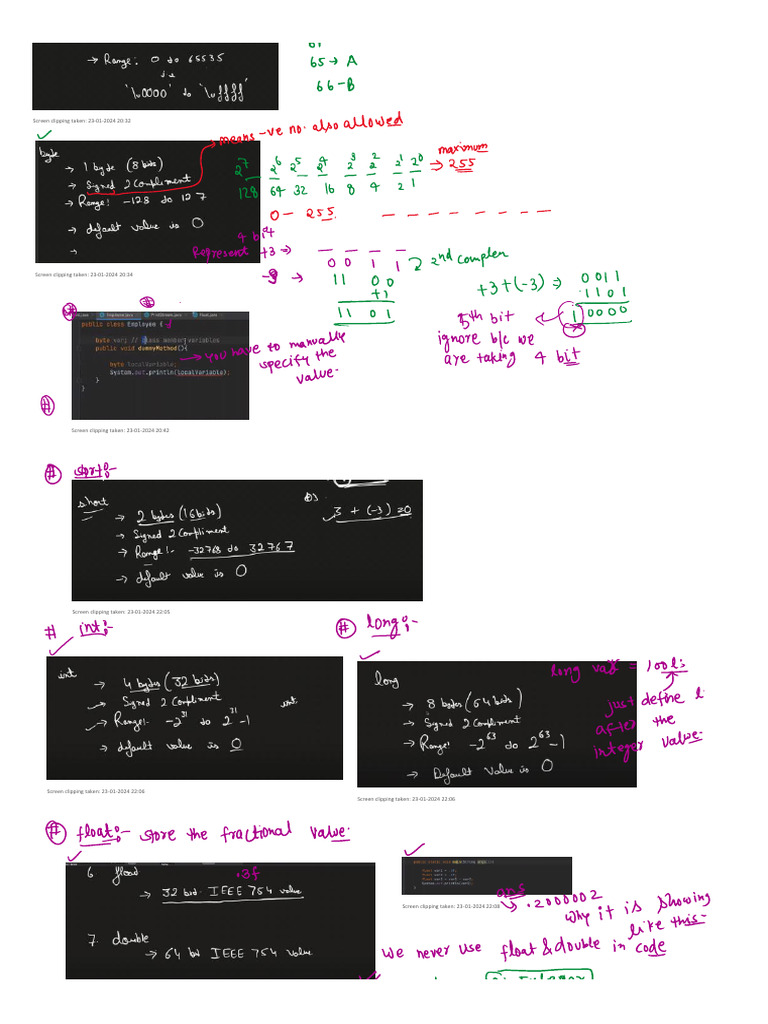 → Range: 0 to 65535
'\u0000' to '\uffff'
65 → A
66 - B
Screen clipping taken: 23-01-2024 20:32
means -ve no. also allowed
byte
→ 1 byte (8 bits)
→ Signed 2 Compliment
→ Range! -128 to 127
→ default value is 0
→
2^7 2^6 2^5 2^4 2^3 2^2 2^1 2^0 → maximum 255
128 64 32 16 8 4 2 1
0 - 255
Screen clipping taken: 23-01-2024 20:34
4 bit
Represent +3 →
0 0 1 1
2nd complem
-3 → 11 00
+1
11 01
+3 + (-3) ⇒ 0011
1101
1 0000
5th bit
ignore b/c we
are taking 4 bit
Employee.java
public class Employee {
byte var; // class member variables
public void dummyMethod(){
byte localVariable;
System.out.println(localVariable);
}
}
→ you have to manually
specify the
value.
Screen clipping taken: 23-01-2024 20:42
# short:-
short
→ 2 bytes (16 bits)
→ Signed 2 Compliment
→ Range!- -32768 to 32767
→ default value is 0
3 + (-3) = 0
Screen clipping taken: 23-01-2024 22:05
# int:-
int
→ 4 bytes (32 bits)
→ Signed 2 Compliment
→ Range!- -2^31 to 2^31 -1
→ default value is 0
int
Screen clipping taken: 23-01-2024 22:06
# long:-
long
→ 8 bytes (64 bits)
→ Signed 2 Compliment
→ Range! -2^63 to 2^63 -1
→ Default Value is 0
long var = 100l;
just define l
after the
integer value.
Screen clipping taken: 23-01-2024 22:06
# float:- store the fractional value.
6. float
.3f
→ 32 bit IEEE 754 value
7. double
→ 64 bit IEEE 754 value
Screen clipping taken: 23-01-2024 22:08
ans
→ .2000002
why it is showing
like this-
we never use float & double in code